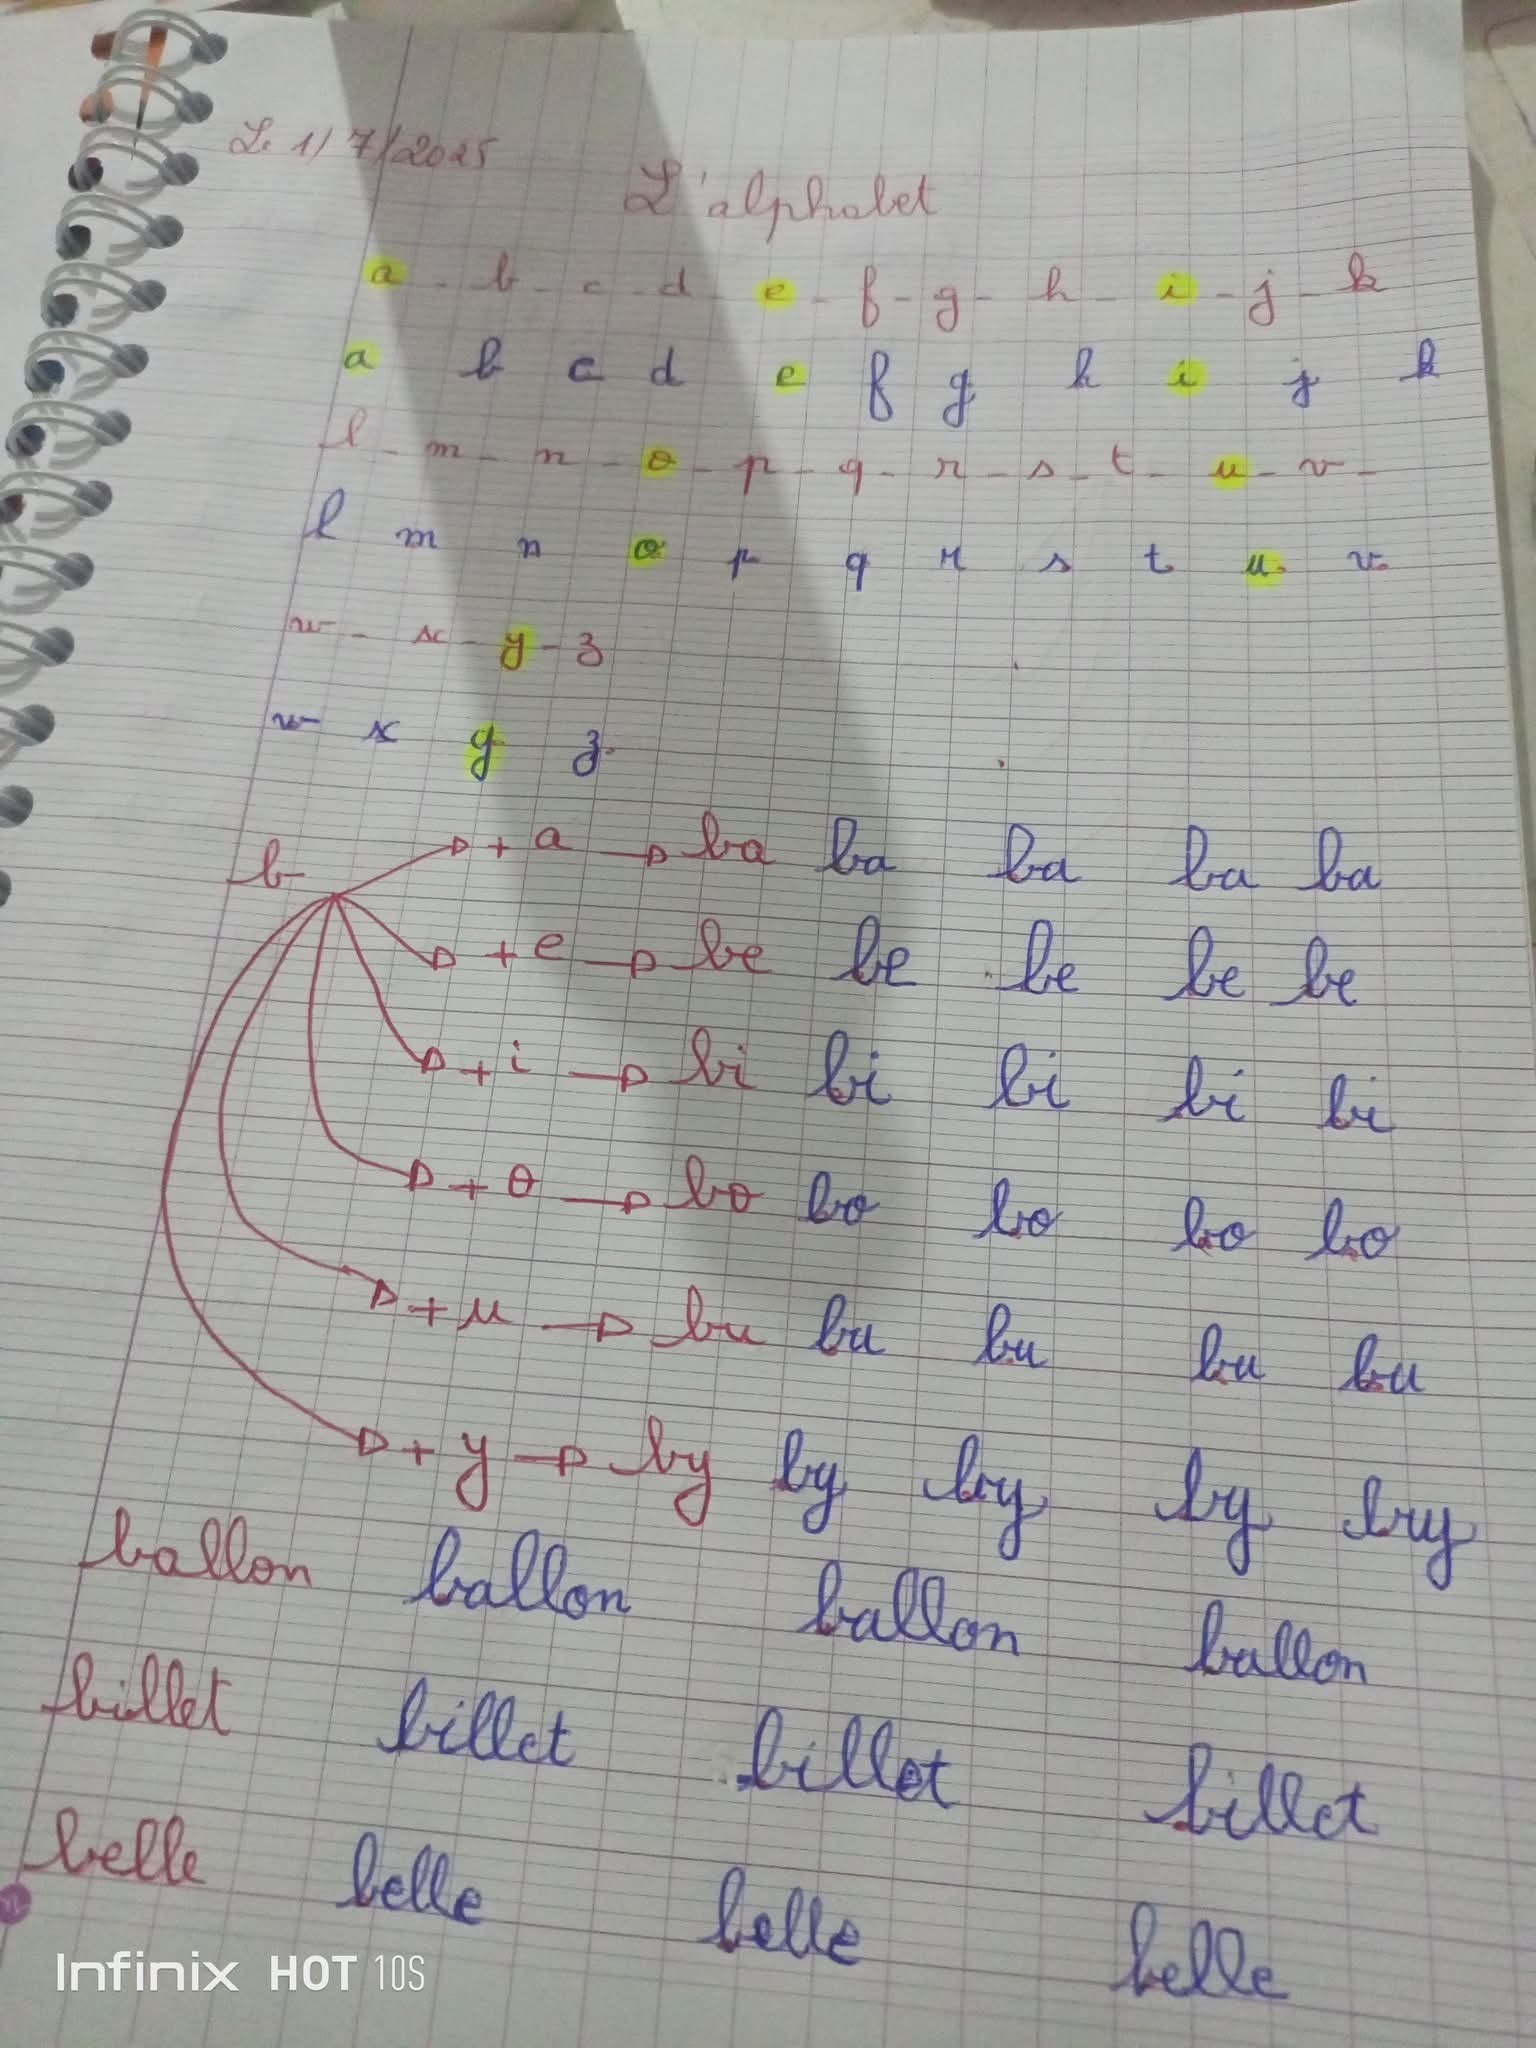 Le 1/7/2025
L'alphabet
a - b - c - d - e - f - g - h - i - j - k
a b c d e f g h i j k
l - m - n - o - p - q - r - s - t - u - v -
l m n o p q r s t u v
w - x - y - z
w x y z
b + a ba ba ba ba ba
+ e be be be be be
+ i bi bi bi bi bi
+ o bo bo bo bo bo
+ u bu bu bu bu bu
+ y by by by by by
ballon ballon ballon ballon
billet billet billet billet
belle belle belle belle
Infinix HOT 10S